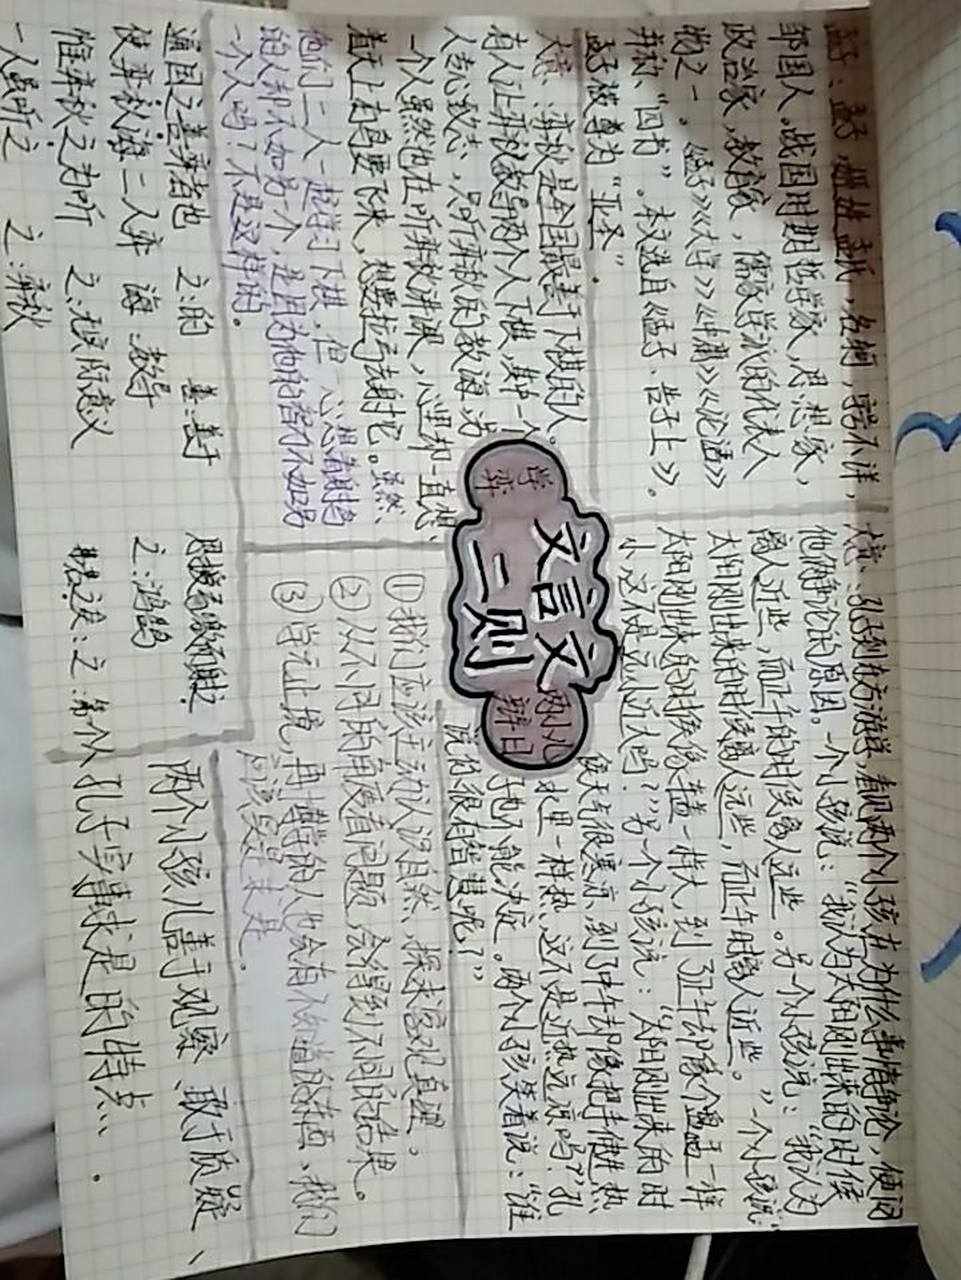 孟子：孟子，姬姓孟氏，名轲，字号不详，
邹国人。战国时期哲学家，思想家，
政治家，教育家，儒家学派的代表人
物之一。《孟子》《大学》《中庸》《论语》
并称“四书”。本文选自《孟子·告子上》。
孟子被尊为“亚圣”.
大意：弈秋是全国最善于下棋的人。
有人让弈秋教导两个人下棋，其中一个
人专心致志，只听弈秋的教诲，另
一个人虽然也在听弈秋讲课，心里却一直想
着天上有鸟要飞来，想要拉弓去射它。虽然
他们二人一起学习下棋，但
的人却不如另一个，是因为他的智力不如另
一个人吗？不是这样的。
通国之善弈者也 之：的 善：善于
使弈秋诲二人弈 诲：教导
惟弈秋之为听 之：无实际意义
一人虽听之 之：弈秋
思援弓缴而射之
之：鸿鹄
之：第一人
学弈
文言文
二则
两小儿
辩日
孔子到东方游学，看见两个小孩在为什么事情争论，便问
他们辩论的原因。一个小孩说：“我认为太阳刚出来的时候
离人近些，而正午的时候离人远些。另一个小孩说：“我认为
太阳刚出来的时候离人远些，而正午时离人近些。”一个小孩说：“
太阳刚出来的时候像车盖一样大，到了正午却像个盘子一样
小，这不是远小近大吗？”另一个小孩说：“太阳刚出来的时
候天气很寒凉，到了中午却像把手伸进热
水里一样热，这不是近热远凉吗？”孔
子也不能决定。两个小孩笑着说：“谁
说你很有智慧呢？”
①我们应该主动认识自然，探求客观真理。
②从不同的角度看问题，会得到不同的结果。
③学无止境，再博学的人也会有不知道的东西，我们
应该实事求是.
两个小孩儿善于观察、敢于质疑、
孔子实事求是的特点.